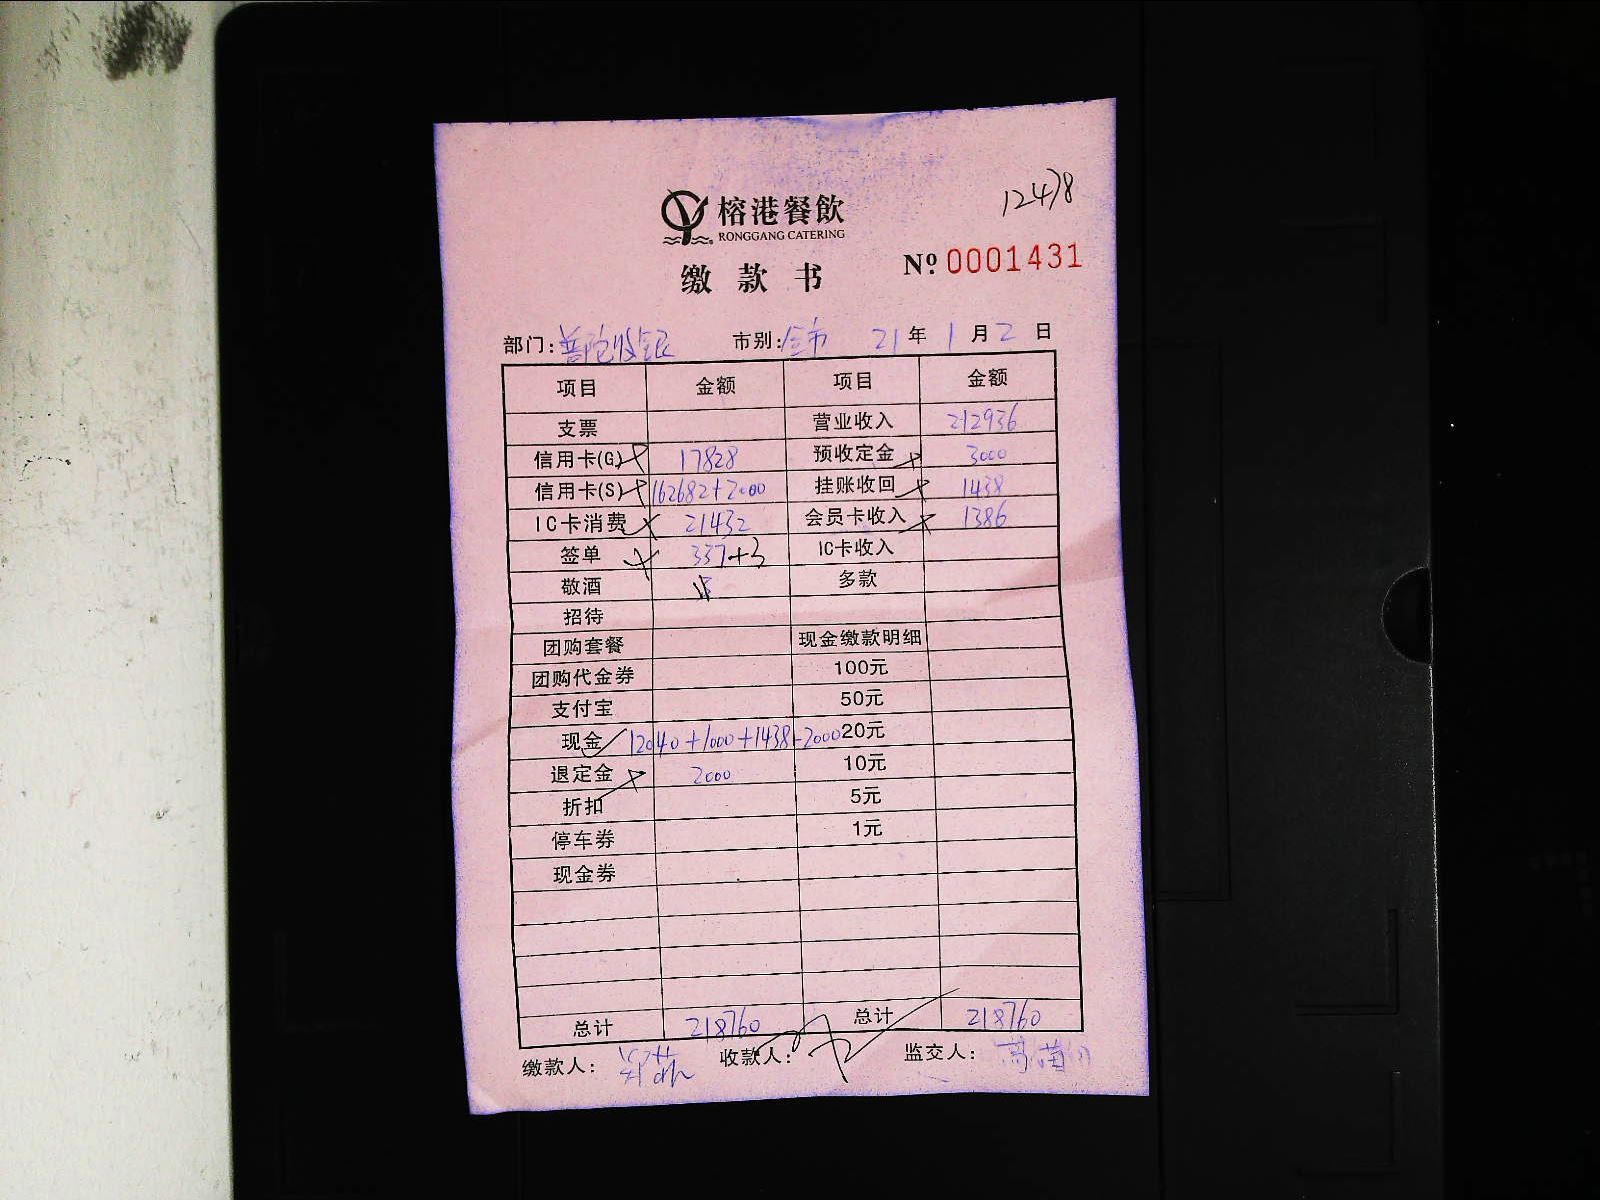 12478
榕港餐飲
RONGGANG CATERING
缴款书
№ 0001431
部门: 普陀收银 市别: 全市 21 年 1 月 2 日
项目 金额 项目 金额
支票 营业收入 212936
信用卡(G) 17828 预收定金 3000
信用卡(S) 162682+2000 挂账收回 1438
IC卡消费 21432 会员卡收入 1386
签单 337+3 IC卡收入
敬酒 多款
招待
团购套餐 现金缴款明细
团购代金券 100元
支付宝 50元
现金 12040+1000+1438-2000 20元
退定金 2000 10元
折扣 5元
停车券 1元
现金券
总计 218760 总计 218760
缴款人: 收款人: 监交人: